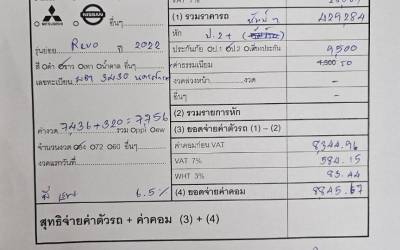 VAT 7%
(1) รวมราคารถ 429,284
MITSUBISHI NISSAN □ อื่นๆ
หัก ป.2+
รุ่นย่อย Revo ปี 2022
ประกันภัย □ป.1 □ป.2 □เปลี่ยนประกัน 9,500
สี □ดำ □ขาว □เทา □น้ำตาล □อื่นๆ
ค่าธรรมเนียม 50
เลขทะเบียน 3430
งวดล่วงหน้า งวด -
อื่นๆ -
(2) รวมรายการหัก
ค่างวด 7,436+320=7,756 รวม □ppi □ew
(3) ยอดจ่ายค่าตัวรถ (1) – (2)
จำนวนงวด □84 □72 □60 □อื่นๆ
ค่าคอมก่อน VAT 8,344.96
งวดแรกวันที่
VAT 7% 584.15
WHT 3% 83.44
6.5%
(4) ยอดจ่ายค่าคอม 8845.67
สุทธิจ่ายค่าตัวรถ + ค่าคอม (3) + (4)